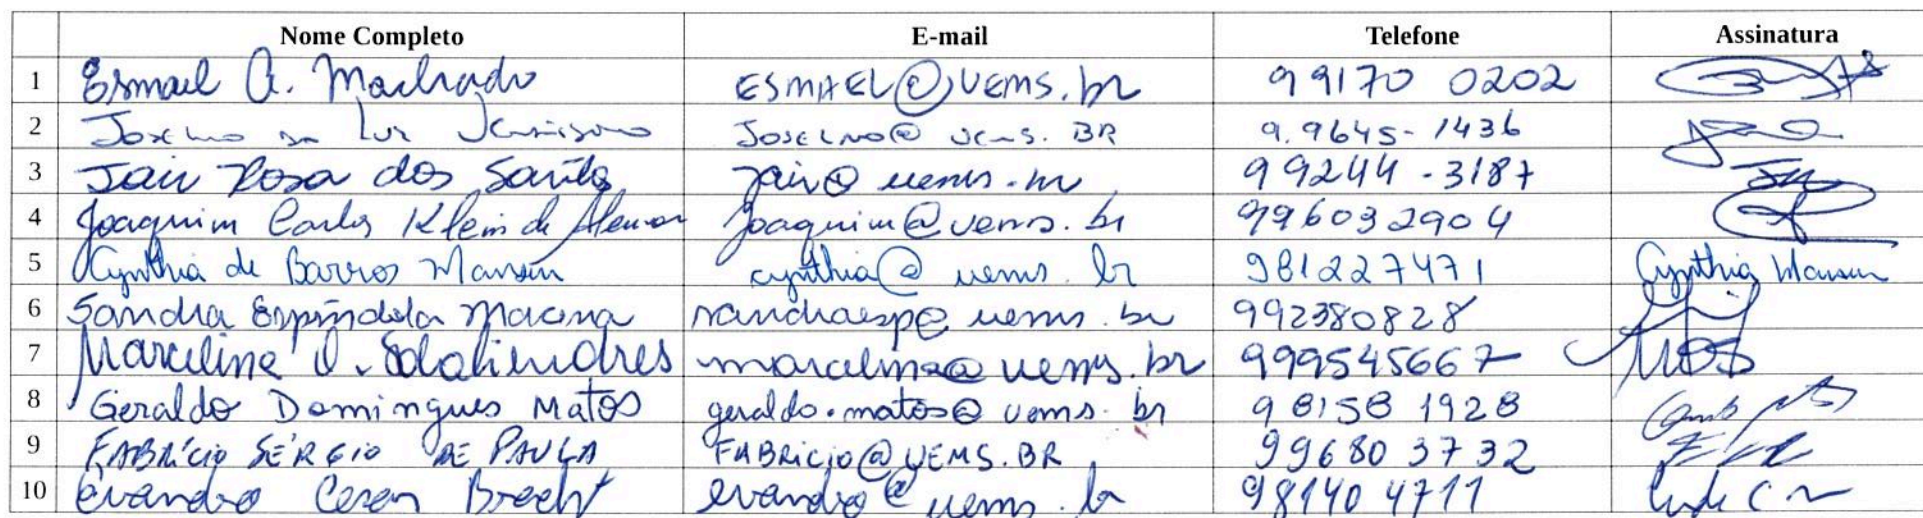 Nome Completo E-mail Telefone Assinatura
1 Esmael A. Machado ESMAEL@UEMS.br 99170 0202
2 Joselno da Luz JOSELNO@UEMS.BR 9.9645-1436
3 Jair Rosa dos Santos jair@uems.br 99244-3187
4 Joaquim Carlos Klein de Alencar joaquim@uems.br 996032904
5 Cynthia de Barros Mansur cynthia@uems.br 981227471 Cynthia Mansur
6 Sandra Espíndola Macena sandraesp@uems.br 992380828
7 Marcelina O. Solaliendres marcelina@uems.br 999545667 MOS
8 Geraldo Domingues Matos geraldo.matos@uems.br 98158 1928
9 FABRÍCIO SÉRGIO DE PAULA FABRICIO@UEMS.BR 99680 3732
10 Evandro Cesar Bracht evandro@uems.br 98140 4711